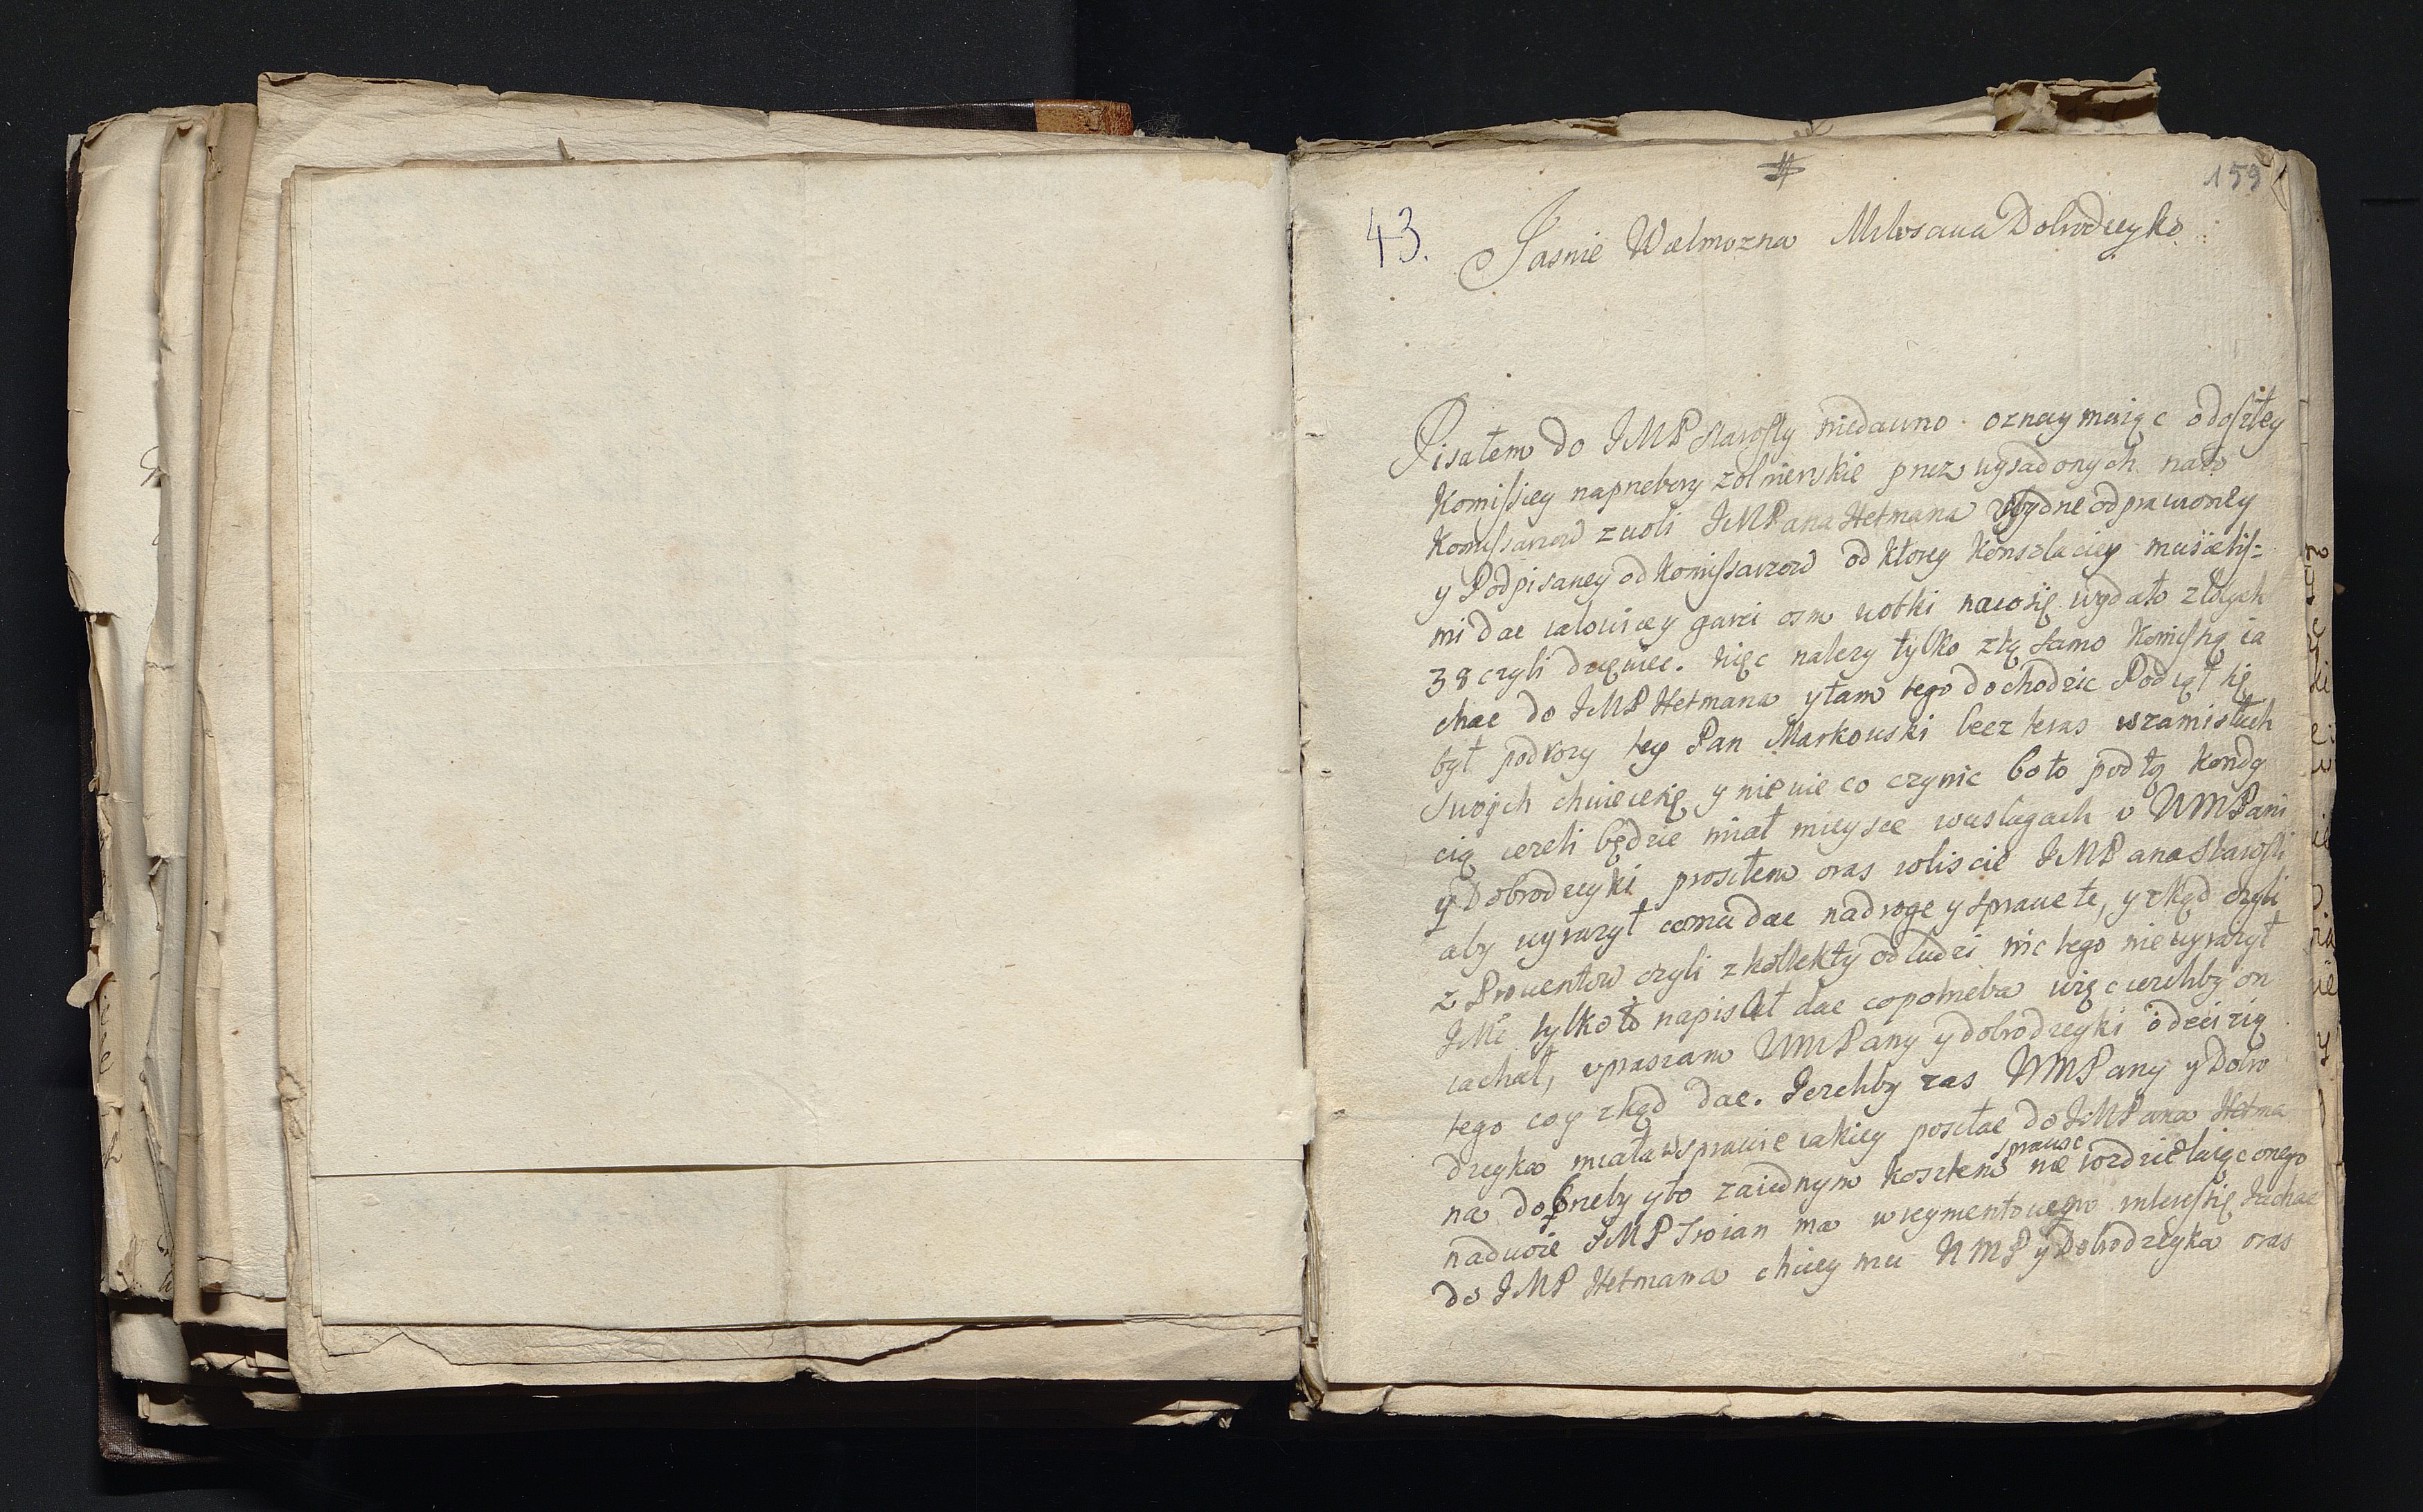 159
43.
Jasnie Wielmozna Miłosciua Dobrodzeyko
Pisałem do JMP Starosty niedawno oznaymuiąc odoszłey
Komissiey naprzebory zołnierskie przez wysadonych nato
Komissarzow zwoli JMPana Hetmana odprawioney
y Podpisaney od Komissarzow od ktorey Konsolaciey musielis=
mi dac iałowicy garci osm wotki nacosię wydało złotych
38 czyli dziewiec. Więc nalezy tylko ztą samo Komisyą ia
chac do JMP Hetmana ytam tego dochodzic Podiął się
był podrozy tey Pan Markowski lecz teras wzamisłach
swoych chwieiesię y niewie co czynic bo to podtą kondy
cią iezeli będzie miał mieysce wusługach v WMPani
y Dobrodzeyki prosiłem oras wliscie JMPana Starosti
aby wyrazył comu dac nadroge y sprawe te, y zkąd czyli
z Prowentow czyli zkollekty odludzi nic tego niewyraził
JMć tylko to napisał dac copotrzeba więc iezeliby on
iachał, upraszam WMPany y dobrodzeyki odecizią
tego co y zkąd dac. Jezeliby zas WMPany y Dobro
dzeyka miała wsprawie iakiey posłac do JMPana Hetma
na dobrzeby yto zaiednym kosztem sprawic nie rozdzielaiąc onego
nadwoie JMP Troian ma wreymentowem interessie Jachac
do JMP Hetmana chciey mu WMP y Dobrodzeyka oras